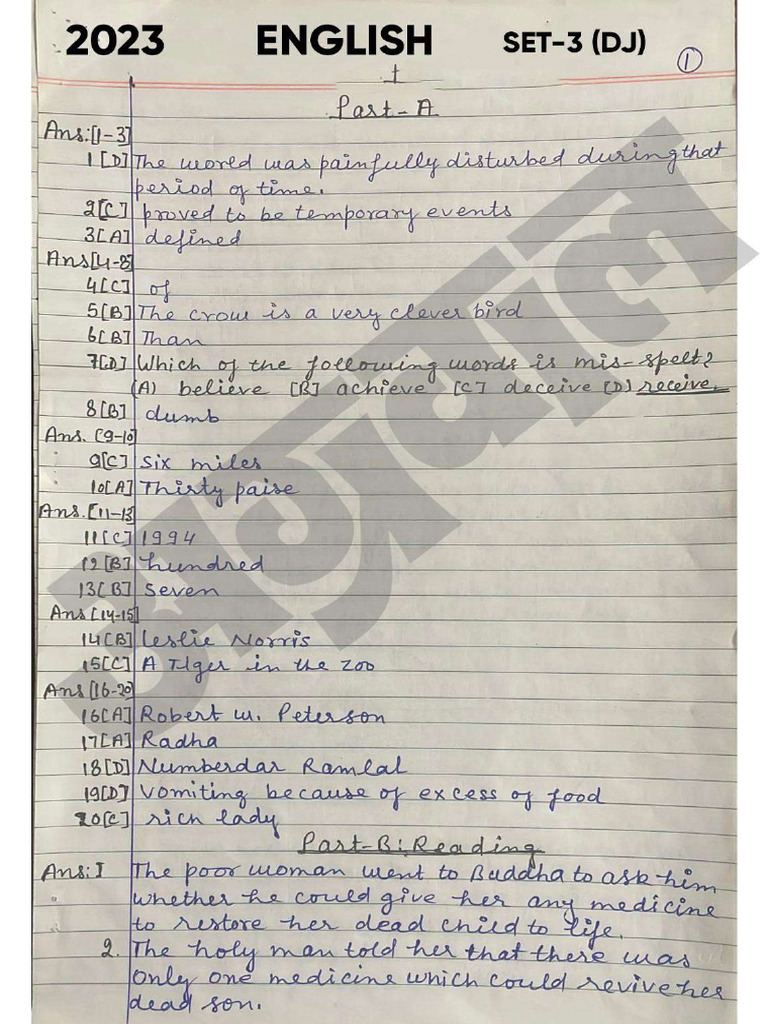 2023 ENGLISH SET-3 (DJ)
1
1
Part-A
Ans:[1-3]
1 [D] The world was painfully disturbed during that
period of time.
2[C] proved to be temporary events
3[A] defined
Ans[4-8]
4[C] of
5[B] The crow is a very clever bird
6[B] Than
7[D] Which of the following words is mis-spelt?
(A) believe [B] achieve [C] deceive (D) receive.
8[B] dumb
Ans. [9-10]
9[C] six miles
10[A] Thirty paise
Ans.[11-13]
11[C] 1994
12[B] hundred
13[B] seven
Ans[14-15]
14[B] Leslie Norris
15[C] A Tiger in the Zoo
Ans[16-20]
16[A] Robert w. Peterson
17[A] Radha
18[D] Numberdar Ramlal
19[D] Vomiting because of excess of food
20[C] rich lady
Part-B: Reading
Ans:I The poor woman went to Buddha to ask him
whether he could give her any medicine
to restore her dead child to life.
2. The holy man told her that there was
only one medicine which could revive her
dead son.
अग्रवाल